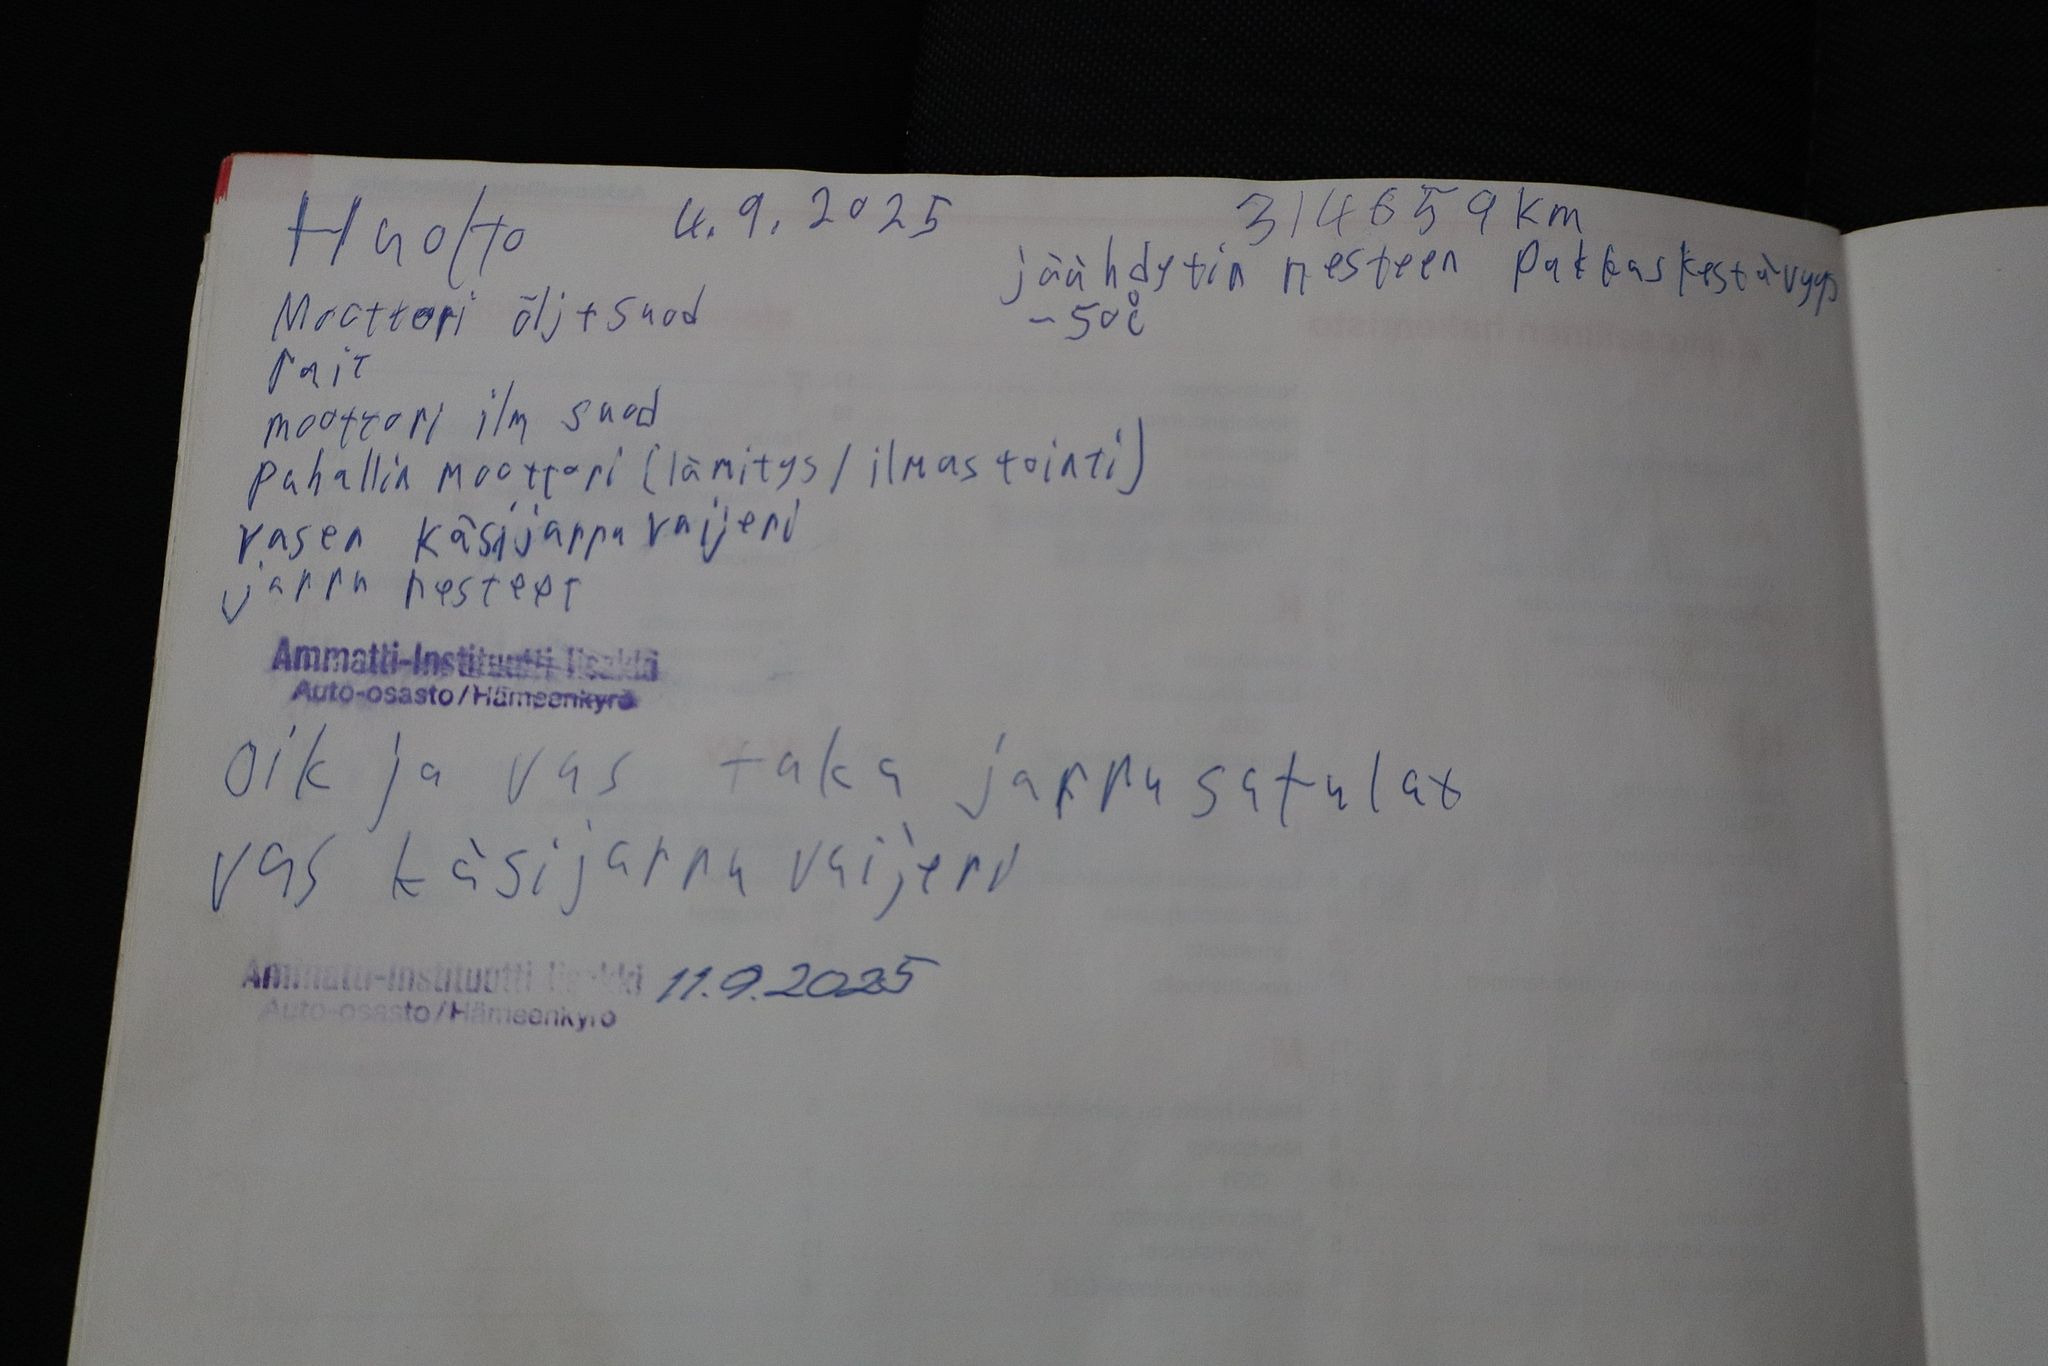 Huolto 4.9.2025 314659 km
jäähdytin nesteen pakkaskestävyys
-50°C
Moottori ölj+suod
rait
moottori ilm suod
puhallin moottori (lämitys/ilmastointi)
vasen käsijarru vaijeri
jarru nesteet
Ammatti-Instituutti Iisakki
Auto-osasto/Hämeenkyrö
oik ja vas taka jarrusatulat
vas käsijarru vaijeri
Ammatti-Instituutti Iisakki 11.9.2025
Auto-osasto/Hämeenkyrö